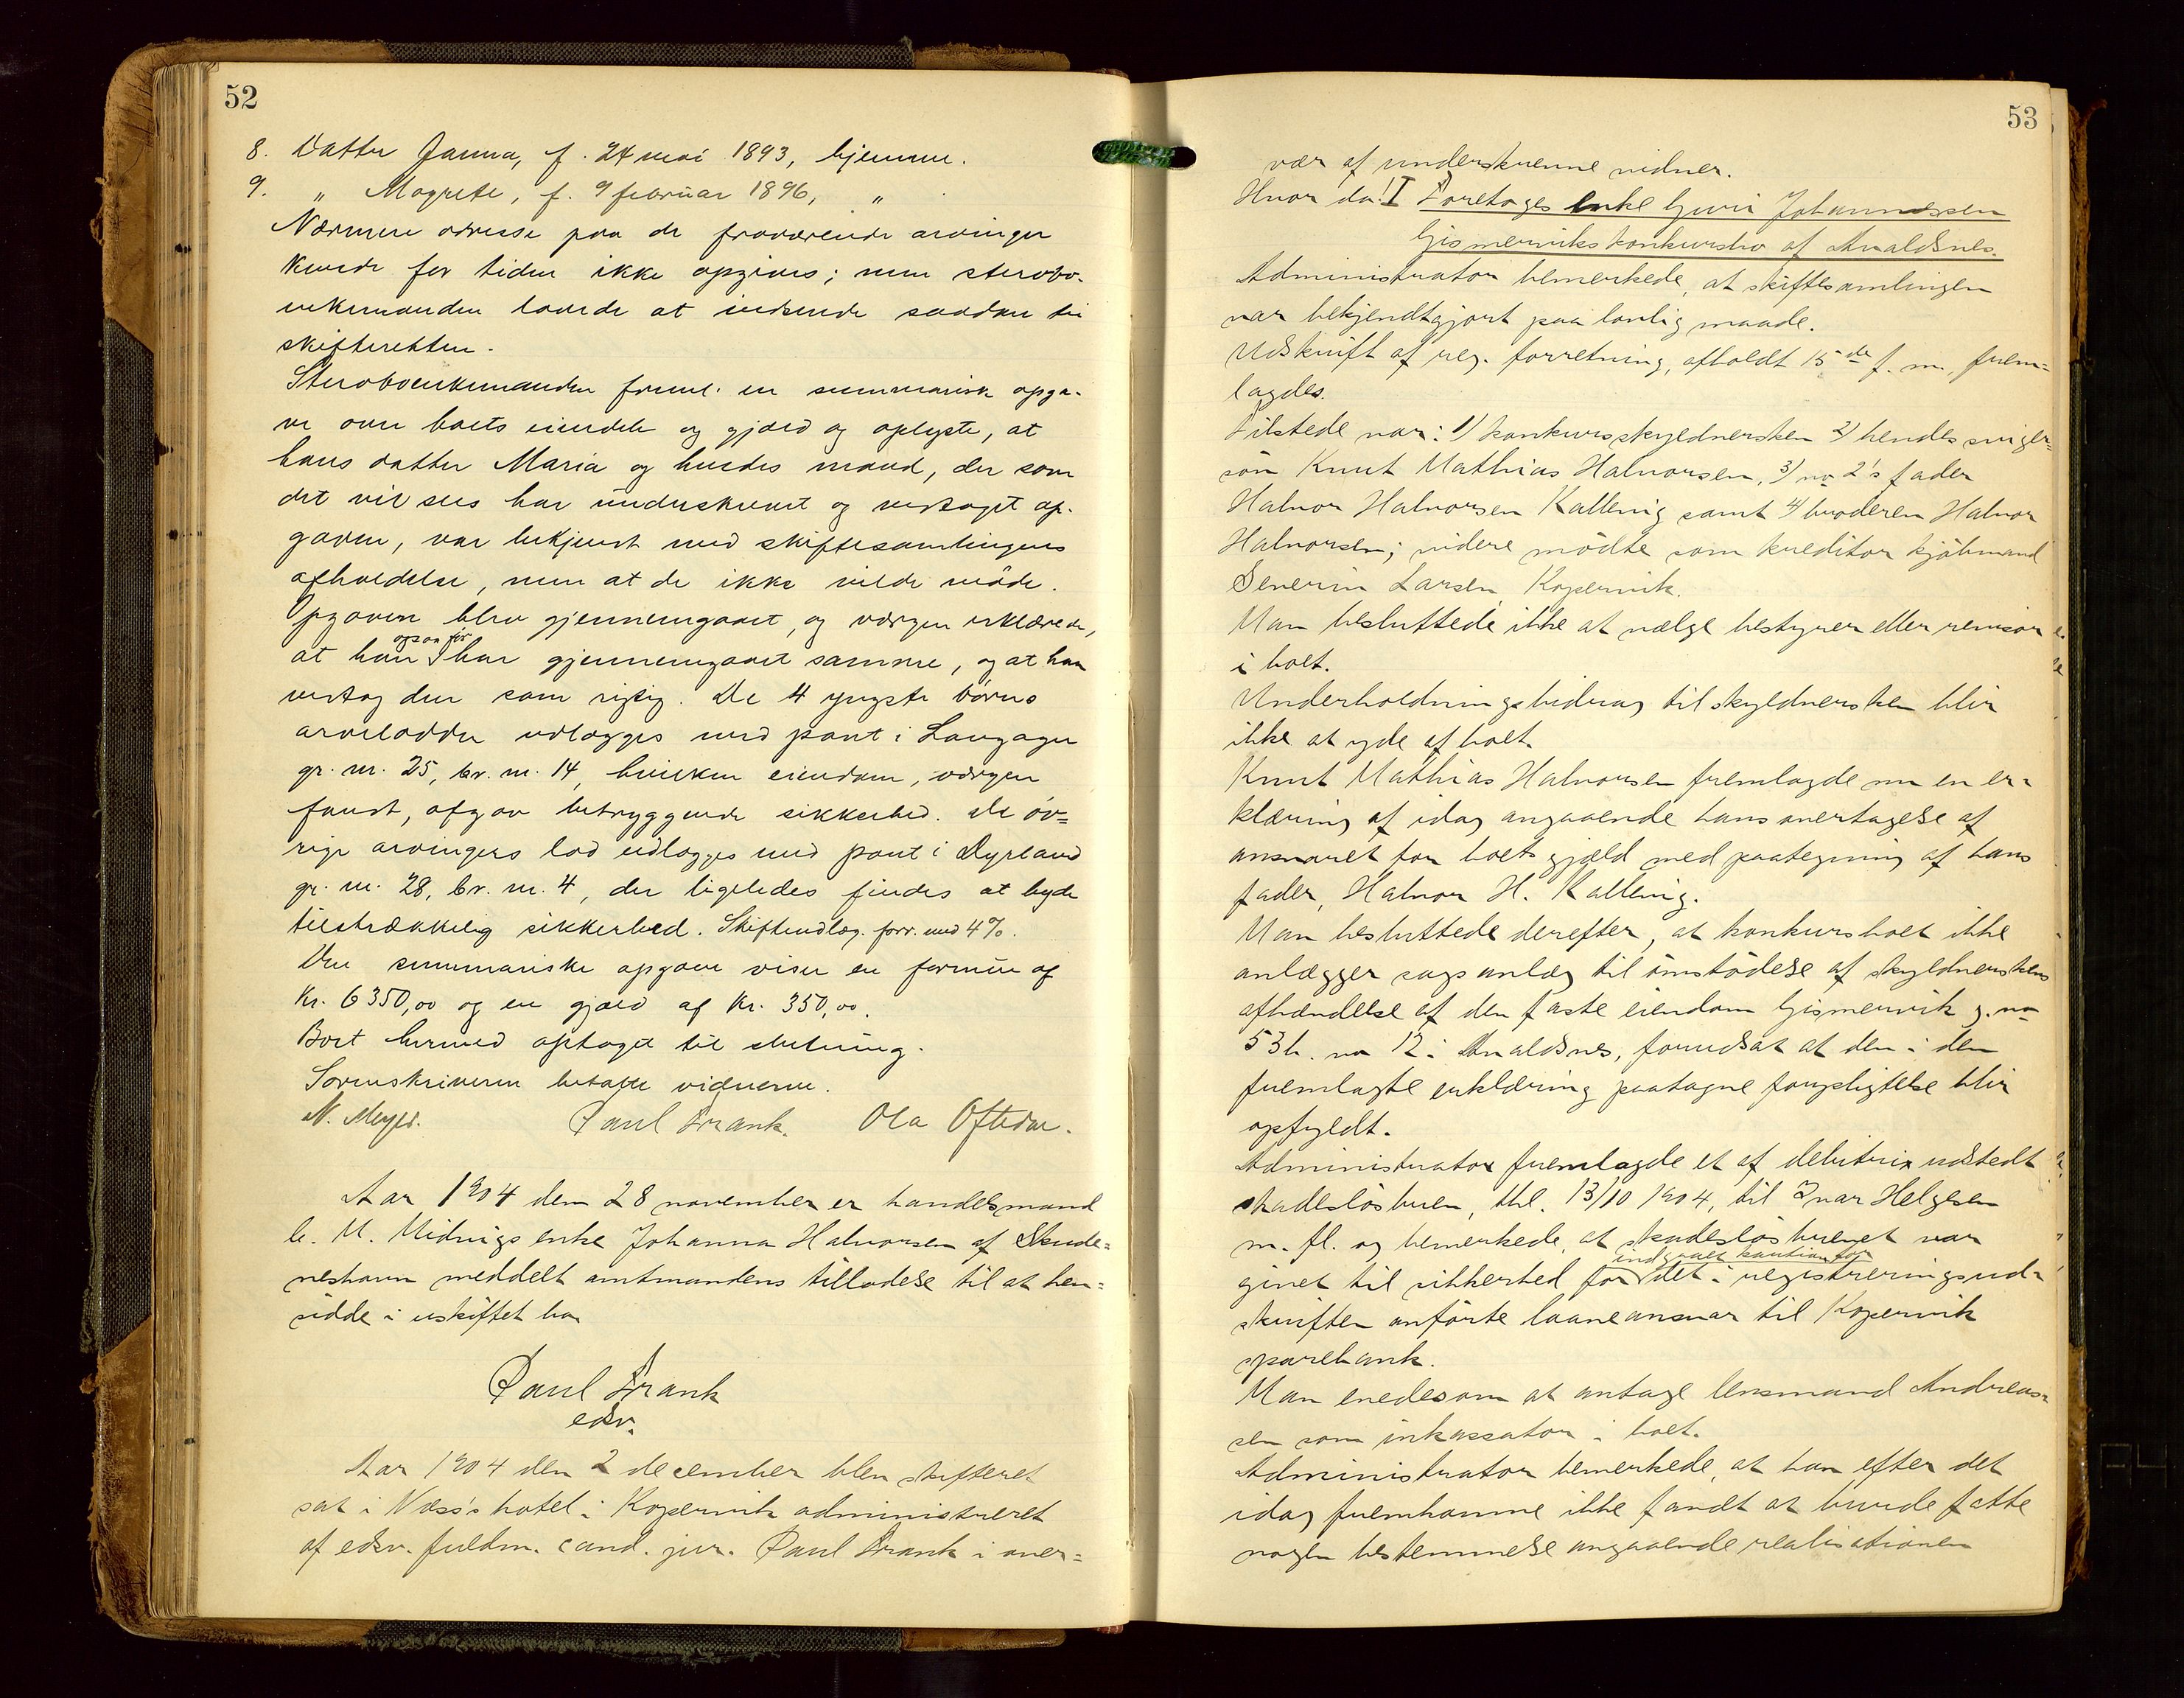 52
8. Datter Janna, f. 24 mai 1893, hjemme.
9. „ Magrete, f. 9 februar 1896, „
Nærmere adresse paa de fraværende arvinger
kunde for tiden ikke opgives; men sterbo-
enkemanden lovede at indsende saadan til
skifteretten.
Sterboenkemanden freml. en summarisk opga-
ve over boets eiendele og gjæld og oplyste, at
hans datter Maria og hendes mand, der som
det vil sees har underskrevet og vedtaget op-
gaven, var bekjendt med skiftesamlingens
afholdelse, men at de ikke vilde møde.
Opgaven blev gjennemgaaet, og værgen erklærede,
ogsaa før
at han har gjennemgaaet samme, og at han
vedtog den som rigtig. De 4 yngste børns
arvelodder udlægges med pant i Langager
gr. nr. 25, br. nr. 14, hvilken eiendom, værgen
fandt, afgav betryggende sikkerhed. De øv=
rige arvingers lod udlægges med pant i Dyrland
gr. nr. 28, br. nr. 4, der ligeledes findes at byde
tilstrækkelig sikkerhed. Skifteudlæg. forr. med 4%.
Den summariske opgave viser en formue af
Kr. 6350,00 og en gjæld af Kr. 350,00.
Boet hermed optaget til slutning.
Sorenskriveren betalte vidnerne.
N. Meyer. Paul Frank. Ola Oftedal.
Aar 1904 den 28 november er handelsmand
M. Midnigs enke Johanna Halvorsen af Skude=
neshavn meddelt amtmandens tilladelse til at hen=
sidde i uskiftet bo
Paul Frank
edsv.
Aar 1904 den 2 december blev skifteret
sat i Næss's hotel i Kopervik administreret
af edsv. fuldm. cand. jur. Paul Frank i over=
53
vær af underskrevne vidner.
Hvor da: I Foretoges enke Gurie Johannessen
Gismerviks konkursbo af Avaldsnes.
Administrator bemerkede, at skiftesamlingen
var bekjendtgjort paa lovlig maade.
Udskrift af reg. forretning, afholdt 15de f. m., frem=
lagdes.
Tilstede var: 1) konkursskyldnersken 2) hendes sviger=
søn Knut Mathias Halvorsen, 3) no 2's fader
Halvor Halvorsen Kallevig samt 4) broderen Halvor
Halvorsen; videre mødte som kreditor kjøbmand
Severin Larsen, Kopervik.
Man besluttede ikke at vælge bestyrer eller revisor
i boet.
Underholdningsbidrag til skyldnersken blir
ikke at yde af boet.
Knut Mathias Halvorsen fremlagde nu en er=
klæring af idag angaaende hans overtagelse af
ansvaret for boets gjæld med paategning af hans
fader, Halvor H. Kallevig.
Man besluttede derefter, at konkursboet ikke
anlægger sagsanlæg til omstødelse af skyldnerskens
afhændelse af den faste eiendom Gismervik g. no
53 b. no 12 i Avaldsnes, forudsat at den i den
fremlagte erklæring paatagne forpligtelse blir
opfyldt.
Administrator fremlagde et af debitrix udstedt
skadesløsbrev, thl. 13/10 1904, til Ivar Helgesen
m. fl. og bemerkede, at skadesløsbrevet var
indgaaet kaution for
givet til sikkerhed for det i registreringsud=
skriften anførte laaneansvar til Kopervik
sparebank.
Man enedes om at antage lensmand Andreas=
sen som inkassator i boet.
Administrator bemerkede, at han efter det
idag fremkomne ikke fandt at burde fatte
nogen bestemmelse angaaende realisationen